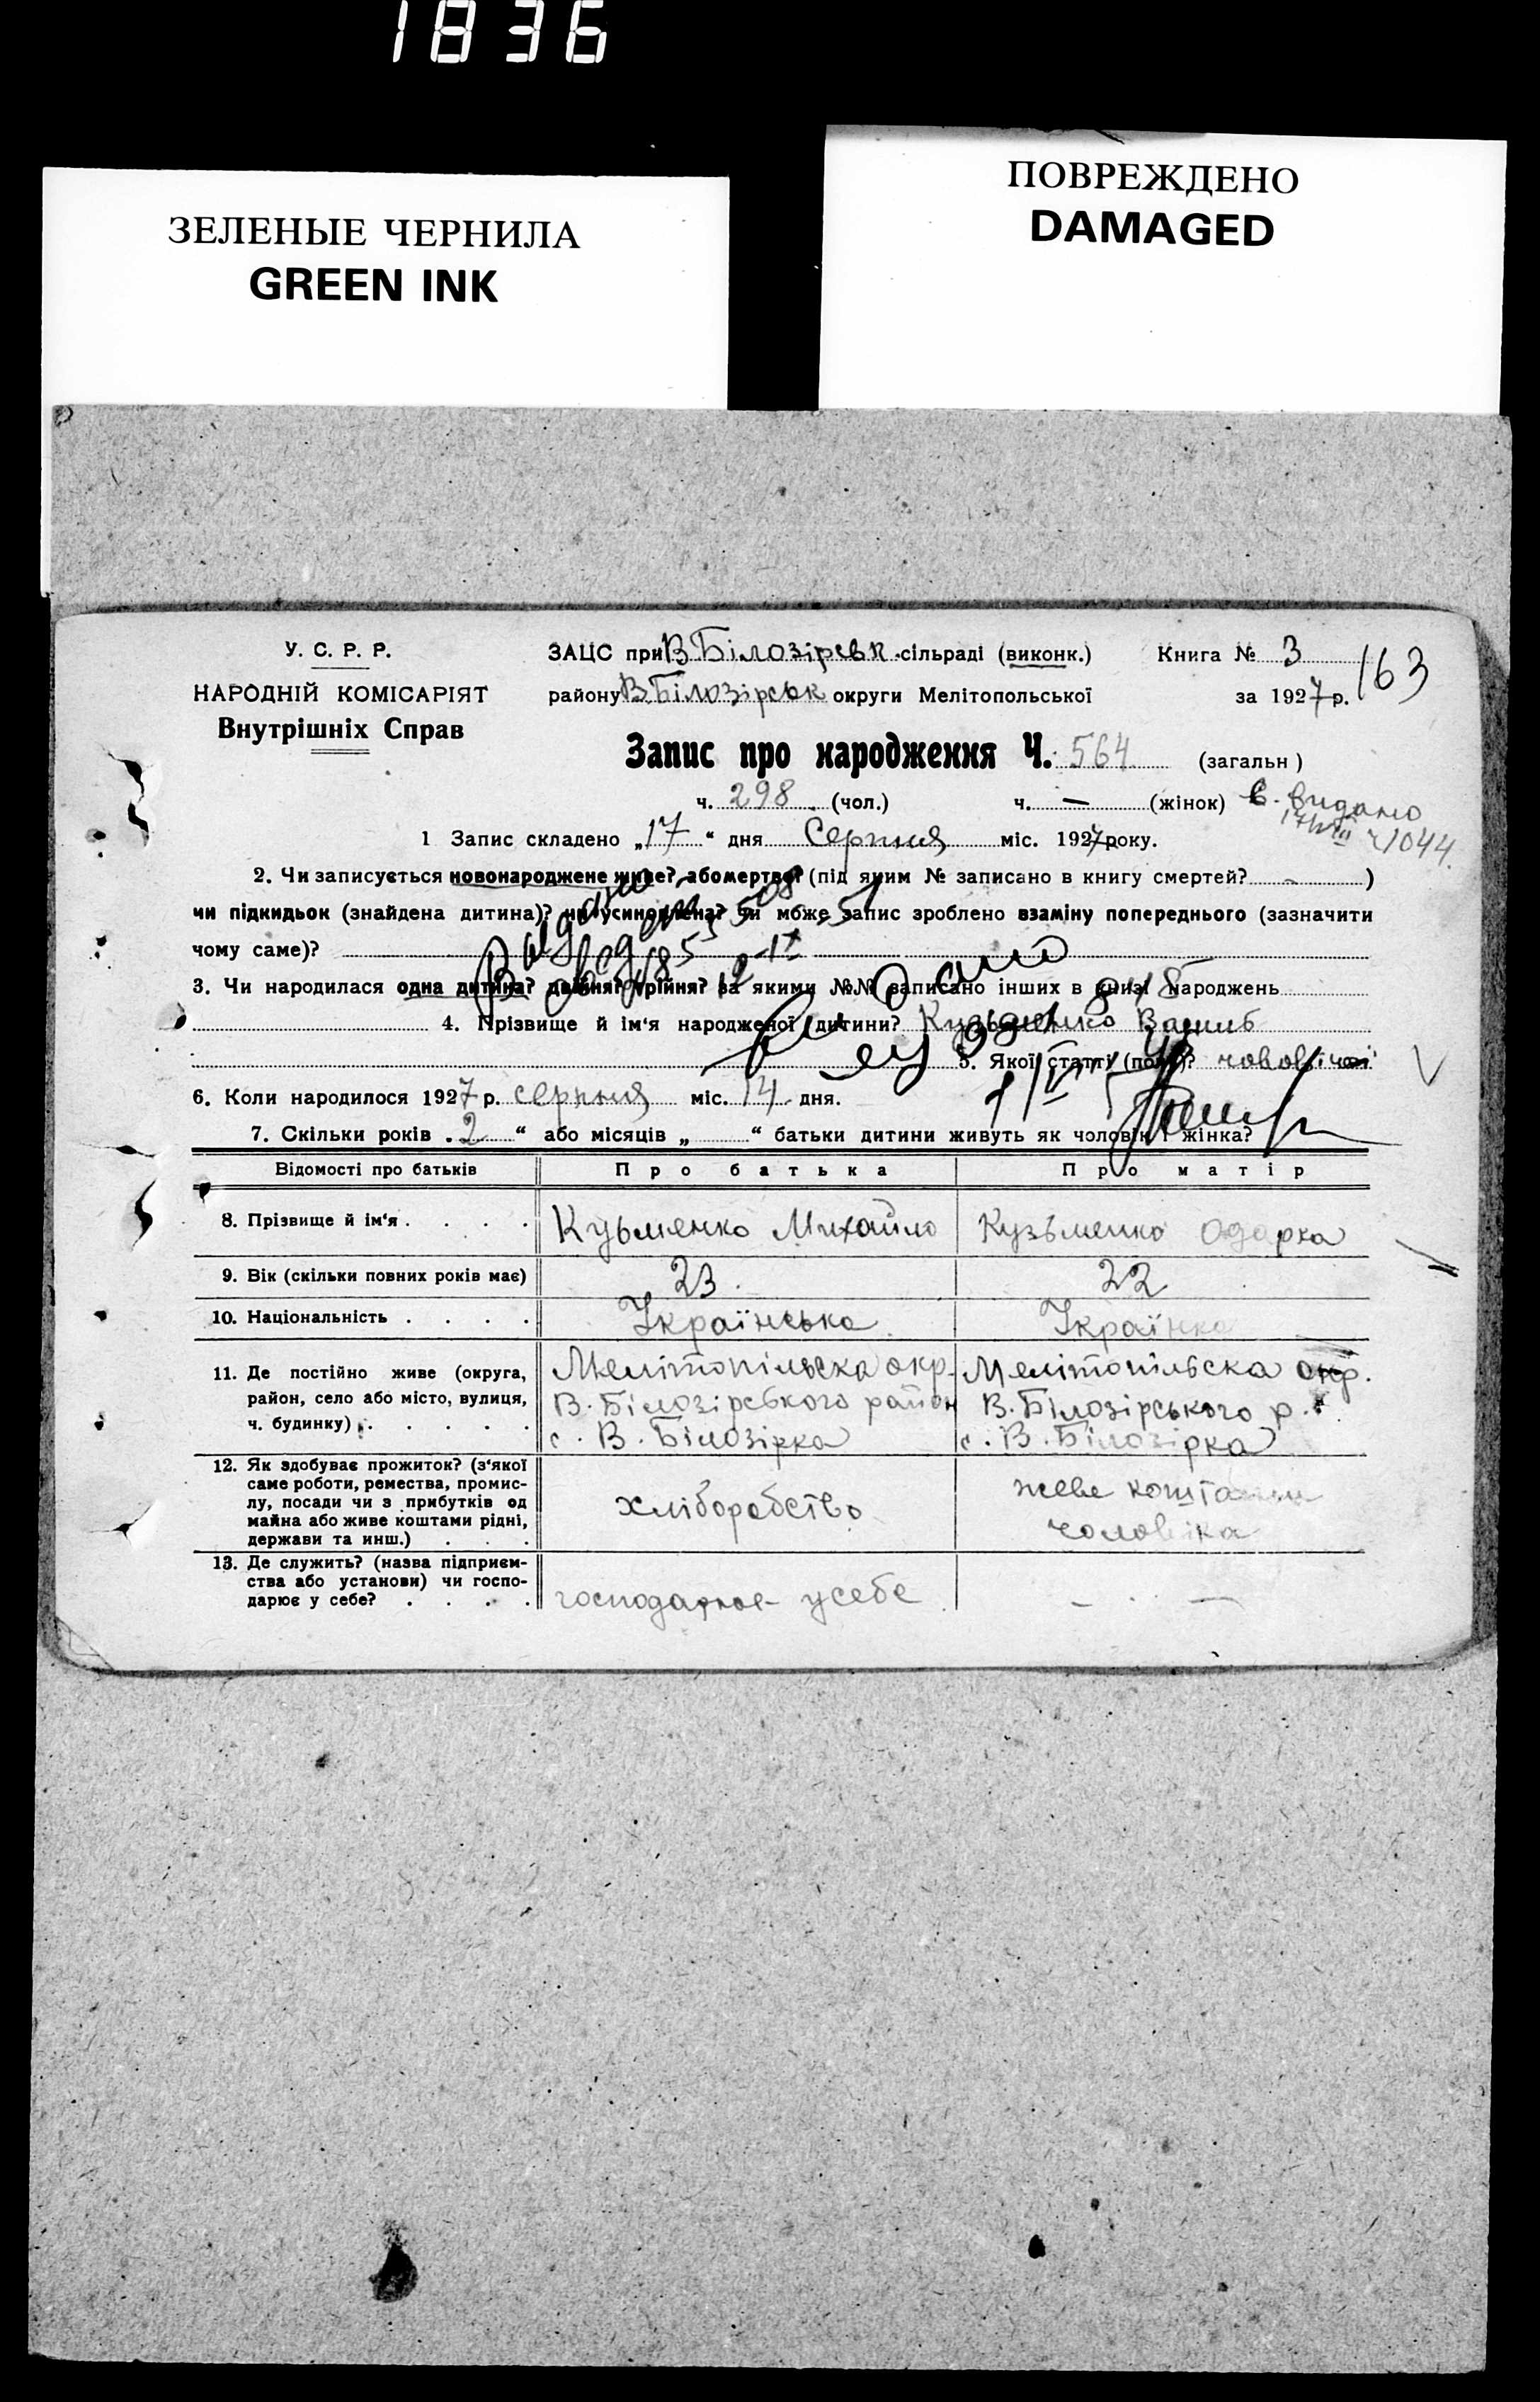 1836
ПОВРЕЖДЕНО
DAMAGED
ЗЕЛЕНЫЕ ЧЕРНИЛА
GREEN INK
У. С. Р. Р.
НАРОДНІЙ КОМІСАРІЯТ
Внутрішніх Справ
ЗАЦС при В Білозірськ. сільраді (виконк.) Книга № 3
163
району В. Білозірськ округи Мелітопольської за 1927 р.
Запис про народження Ч. 564 (загальн)
ч. 298 (чол.) ч. — (жінок)
в. видано
17/VIII ч 1044
1 Запис складено „17“ дня Серпня міс. 1927 року.
2. Чи записується новонароджене живе? або мертве? (під яким № записано в книгу смертей? - )
чи підкидьок (знайдена дитина)? чи усиновлена? чи може запис зроблено взаміну попереднього (зазначити
чому саме)?
3. Чи народилася одна дитина? двійня? трійня? за якими №№ записано інших в книзі народжень
4. Прізвище й ім'я народженої дитини? Кузьменко Василь
5. Якої статті (полу)? чоловічої
6. Коли народилося 1927 р. серпня міс. 14 дня.
7. Скільки років „2“ або місяців „ “ батьки дитини живуть як чоловік і жінка?
Відомості про батьків Про батька Про матір
8. Прізвище й ім'я . . . . Кузьменко Михайло Кузьменко Одарка
9. Вік (скільки повних років має) 23. 22
10. Національність . . . . Українська Українка
11. Де постійно живе (округа, Мелітопільська окр. Мелітопільська окр.
район, село або місто, вулиця, В. Білозірського район В. Білозірського р.
ч. будинку) . . . . . с. В. Білозірка с. В. Білозірка
12. Як здобуває прожиток? (з'якої
саме роботи, ремества, промис-
лу, посади чи з прибутків од хліборобство живе коштами
майна або живе коштами рідні, чоловіка
держави та инш.) . . .
13. Де служить? (назва підприєм-
ства або установи) чи госпо-
дарює у себе? . . . . господарює у себе —